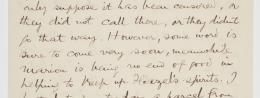 only suppose it has been censored, or
they did not call there, or they didn't
go that way. However, some word is
sure to come very soon, meanwhile
Marion is being no end of good in
helping to keep up Hazel's spirits. I
a parcel from